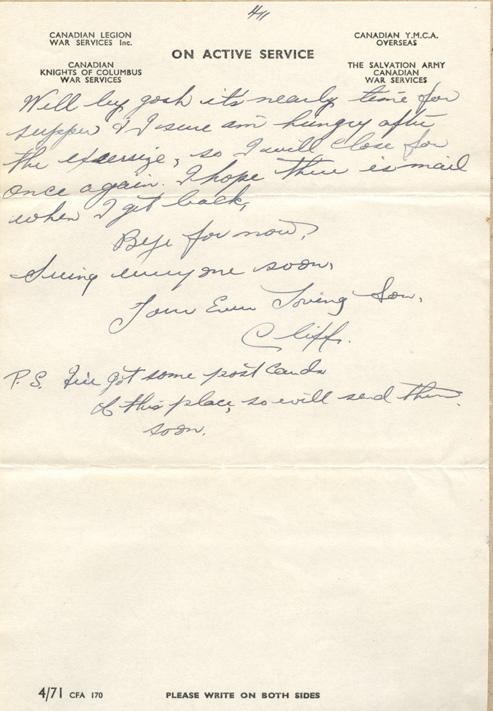 4/
CANADIAN LEGION
WAR SERVICES Inc.
CANADIAN
KNIGHTS OF COLUMBUS
WAR SERVICES
ON ACTIVE SERVICE
CANADIAN Y.M.C.A.
OVERSEAS
THE SALVATION ARMY
CANADIAN
WAR SERVICES
Will by gosh it's nearly time for
supper & I sure am hungry after
the exersize, so I will close for
once again. I hope there is mail
when I get back,
Bye for now,
Seeing everyone soon,
Your Ever Loving Son,
Cliff.
P.S. I've got some post cards
of this place, so will send them
soon.
4/71 CFA 170
PLEASE WRITE ON BOTH SIDES